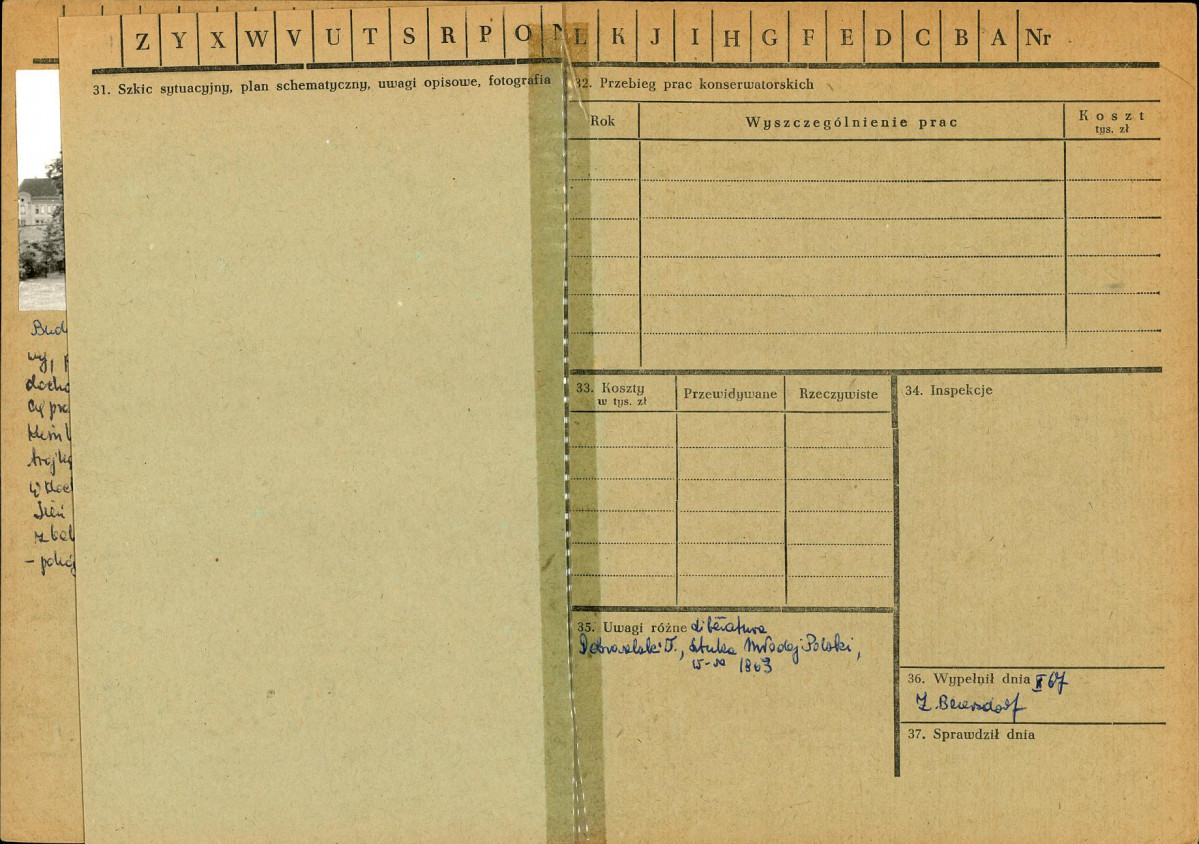 Z Y X W V U T S R P O N L K J I H G F E D C B A Nr
31. Szkic sytuacyjny, plan schematyczny, uwagi opisowe, fotografia
32. Przebieg prac konserwatorskich
Rok
Wyszczególnienie prac
Koszt
tys. zł
33. Koszty
w tys. zł
Przewidywane
Rzeczywiste
34. Inspekcje
35. Uwagi różne Literatura
T., Sztuka Młodej Polski,
1963
36. Wypełnił dnia X 67
Z. Beiersdorf
37. Sprawdził dnia
Bud
wy, p
docho